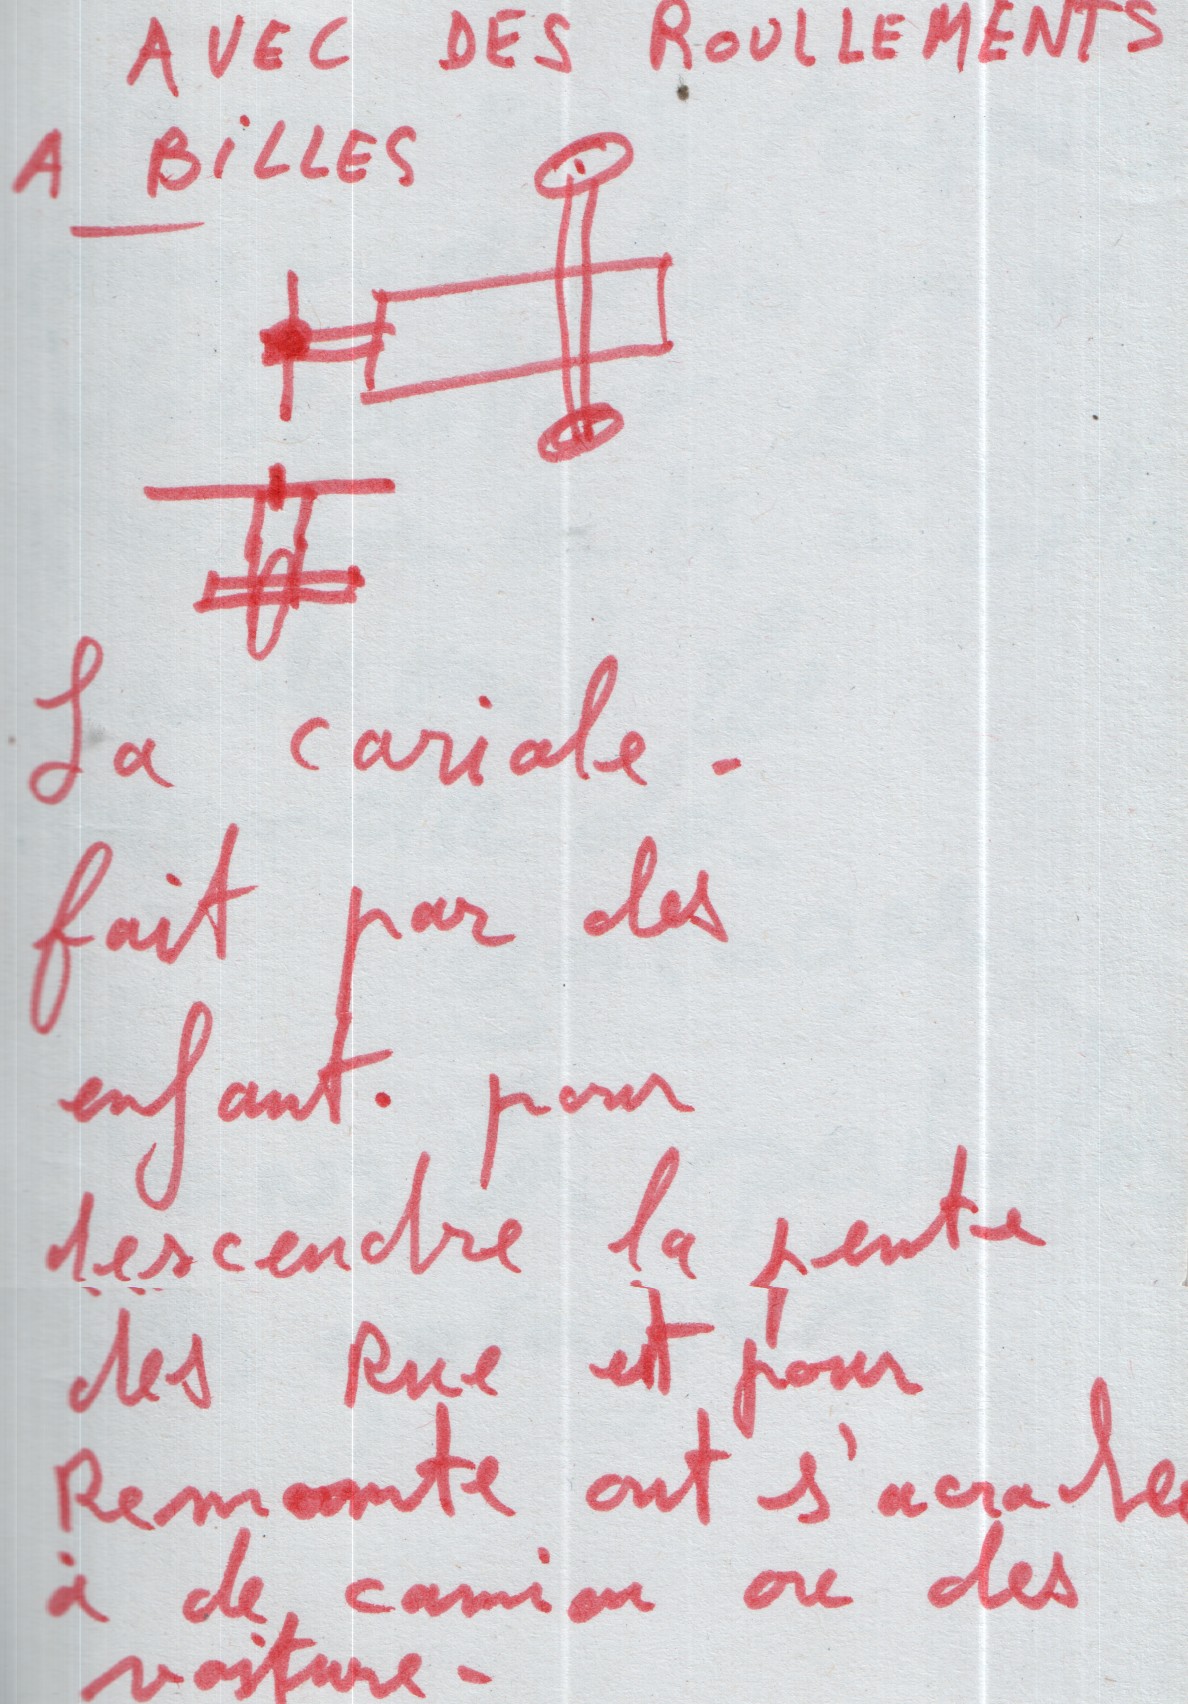 AVEC DES ROULLEMENTS
A BiLLES
La cariole.
fait par des
enfant. pour
descendre la pente
des Rue et pour
Remonte ont s'acra
à de camion ou des
voiture.